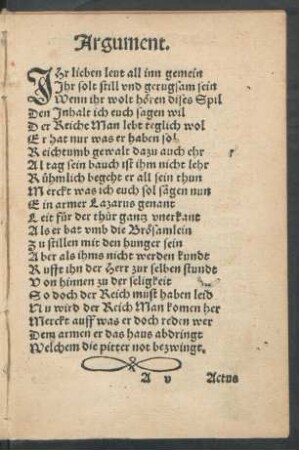 Argument.
IHr lieben leut all inn gemein
Ihr solt still vnd gerugsam sein
Wenn ihr wolt hören dises Spil
Den Inhalt ich euch sagen wil
Der Reiche Man lebt teglich wol
Er hat nur was er haben sol
Reichtumb gewalt dazu auch ehr
Al tag sein bauch ist ihm nicht lehr
Rühmlich begeht er all sein thun
Merckt was ich euch sol sagen nun
Ein armer Lazarus genant
Leit für der thür gantz vnerkant
Als er bat vmb die Brösamlein
Zu stillen mit den hunger sein
Aber als ihms nicht werden kundt
Rufft ihn der Herr zur selben stundt
Von hinnen zu der seligkeit
So doch der Reich must haben leid
Nu wird der Reich Man komen her
Merckt auff was er doch reden wer
Dem armen er das haus abdringt
Welchem die pitter not bezwingt.
A v Actus